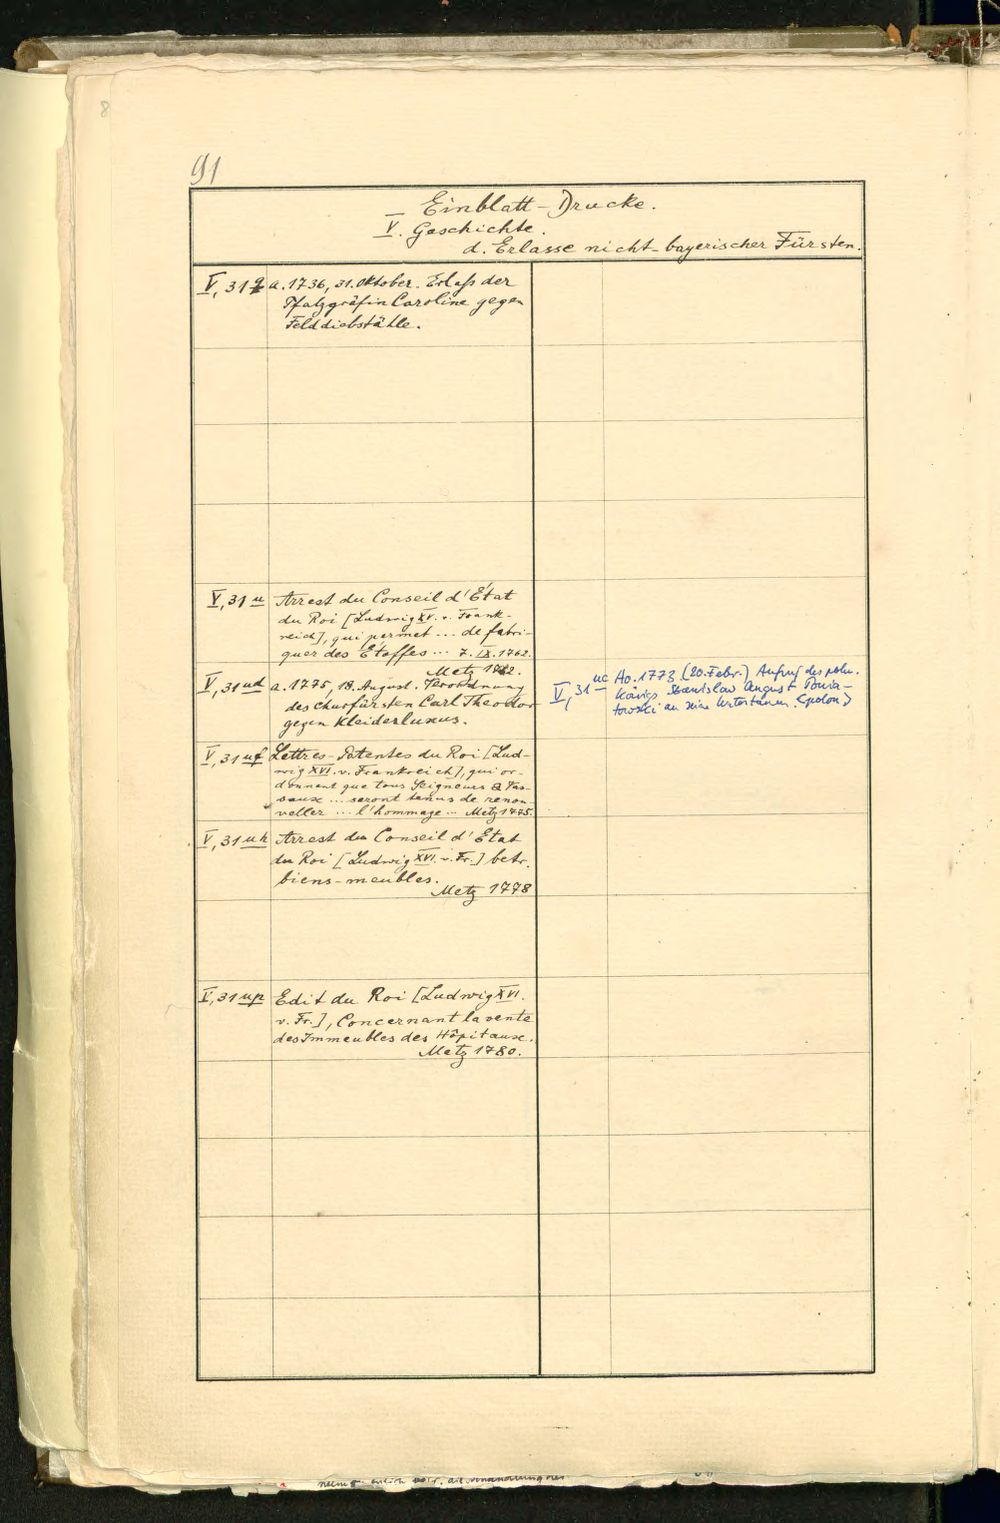 8
91
Einblatt-Drucke.
V. Geschichte.
d. Erlasse nicht-bayerischer Fürsten.
V, 31 q a. 1736, 31. Oktober. Erlaß der
Pfalzgräfin Caroline gegen
Felddiebstähle.
V, 31 u Arrest du Conseil d'État
du Roi [Ludwig XV. v. Frank-
reich], qui permet ... de fabri-
quer des Étoffes ... 7. IX. 1762.
Metz 1762.
V, 31 ud a. 1775, 18. August. Verordnung
des Churfürsten Carl Theodor
gegen Kleiderluxus.
V, 31 uf Lettres-Patentes du Roi [Lud-
wig XVI. v. Frankreich], qui or-
donnent que tous Seigneurs & Vas-
saux ... seront tenus de renou-
veller ... l'hommage ... Metz 1775.
V, 31 uh Arrest du Conseil d'État
du Roi [Ludwig XVI. v. Fr.] betr.
biens-meubles.
Metz 1778
V, 31 up Edit du Roi [Ludwig XVI.
v. Fr.], Concernant la vente
des Immeubles des Hôpitaux.
Metz 1780.
V, 31 uc Ao. 1773 (20. Febr.) Aufruf des poln.
Königs Stanislav August Ponia-
towski an seine Untertanen. (polon.)